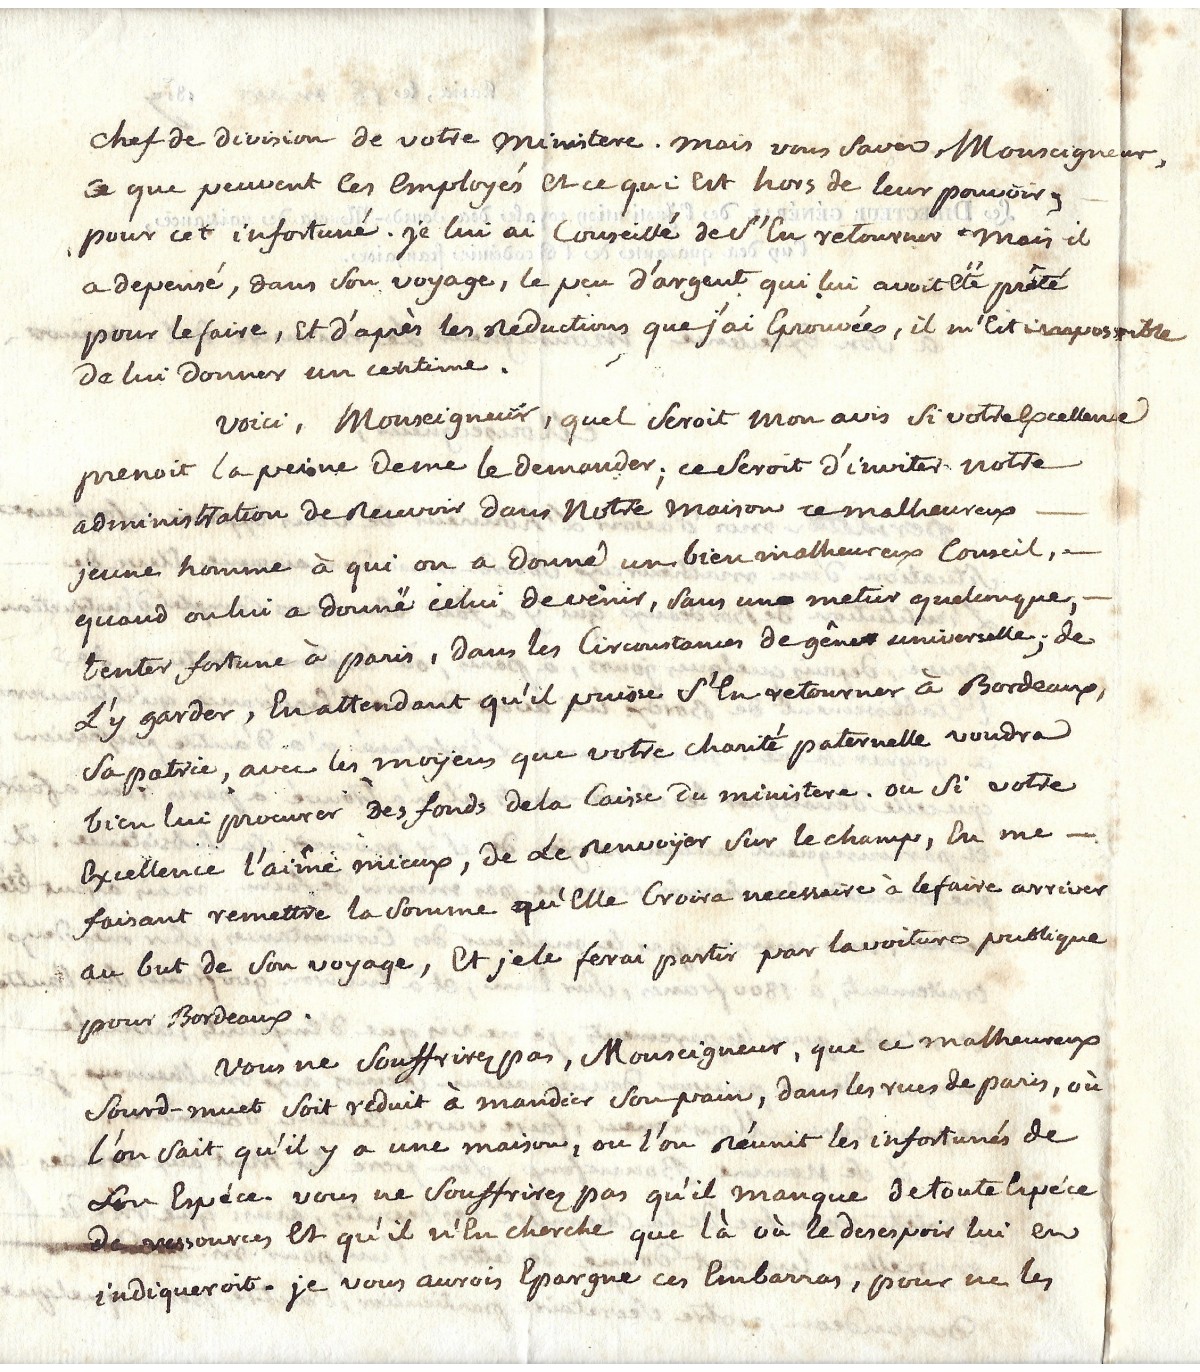 chef de division de votre ministere. mais vous savez, Monseigneur,
ce que peuvent les employés et ce qui est hors de leur pouvoir,
pour cet infortuné. je lui ai conseillé de s'en retourner. Mais il
a depensé, dans son voyage, le peu d'argent qui lui avoit été prêté
pour le faire, et d'après les reductions que j'ai eprouvées, il m'est impossible
de lui donner un centime.
voici, Monseigneur, quel seroit mon avis si votre excellence
prenoit la peine de me le demander; ce seroit d'inviter notre
administration de recevoir dans Notre maison ce malheureux
jeune homme à qui on a donné un bien malheureux conseil,
quand on lui a donné celui de venir, sans une metier quelconque,
tenter fortune à paris, dans les circonstances de gêne universelle; de
l'y garder, en attendant qu'il puisse s'en retourner à Bordeaux,
sa patrie, avec les moyens que votre charité paternelle voudra
bien lui procurer des fonds de la caisse du ministere. ou si votre
excellence l'aime mieux, de le renvoyer sur le champ, en me
faisant remettre la somme qu'elle croira necessaire à le faire arriver
au but de son voyage, et je le ferai partir par la voiture publique
pour Bordeaux.
vous ne souffrirez pas, Monseigneur, que ce malheureux
sourd-muet soit reduit à mandier son pain, dans les rues de paris, où
l'on sait qu'il y a une maison, ou l'on réunit les infortunés de
son espéce. vous ne souffrirez pas qu'il manque de toute espéce
de ressources et qu'il n'en cherche que là où le desespoir lui en
indiqueroit. je vous aurois epargné ces embarras, pour ne les